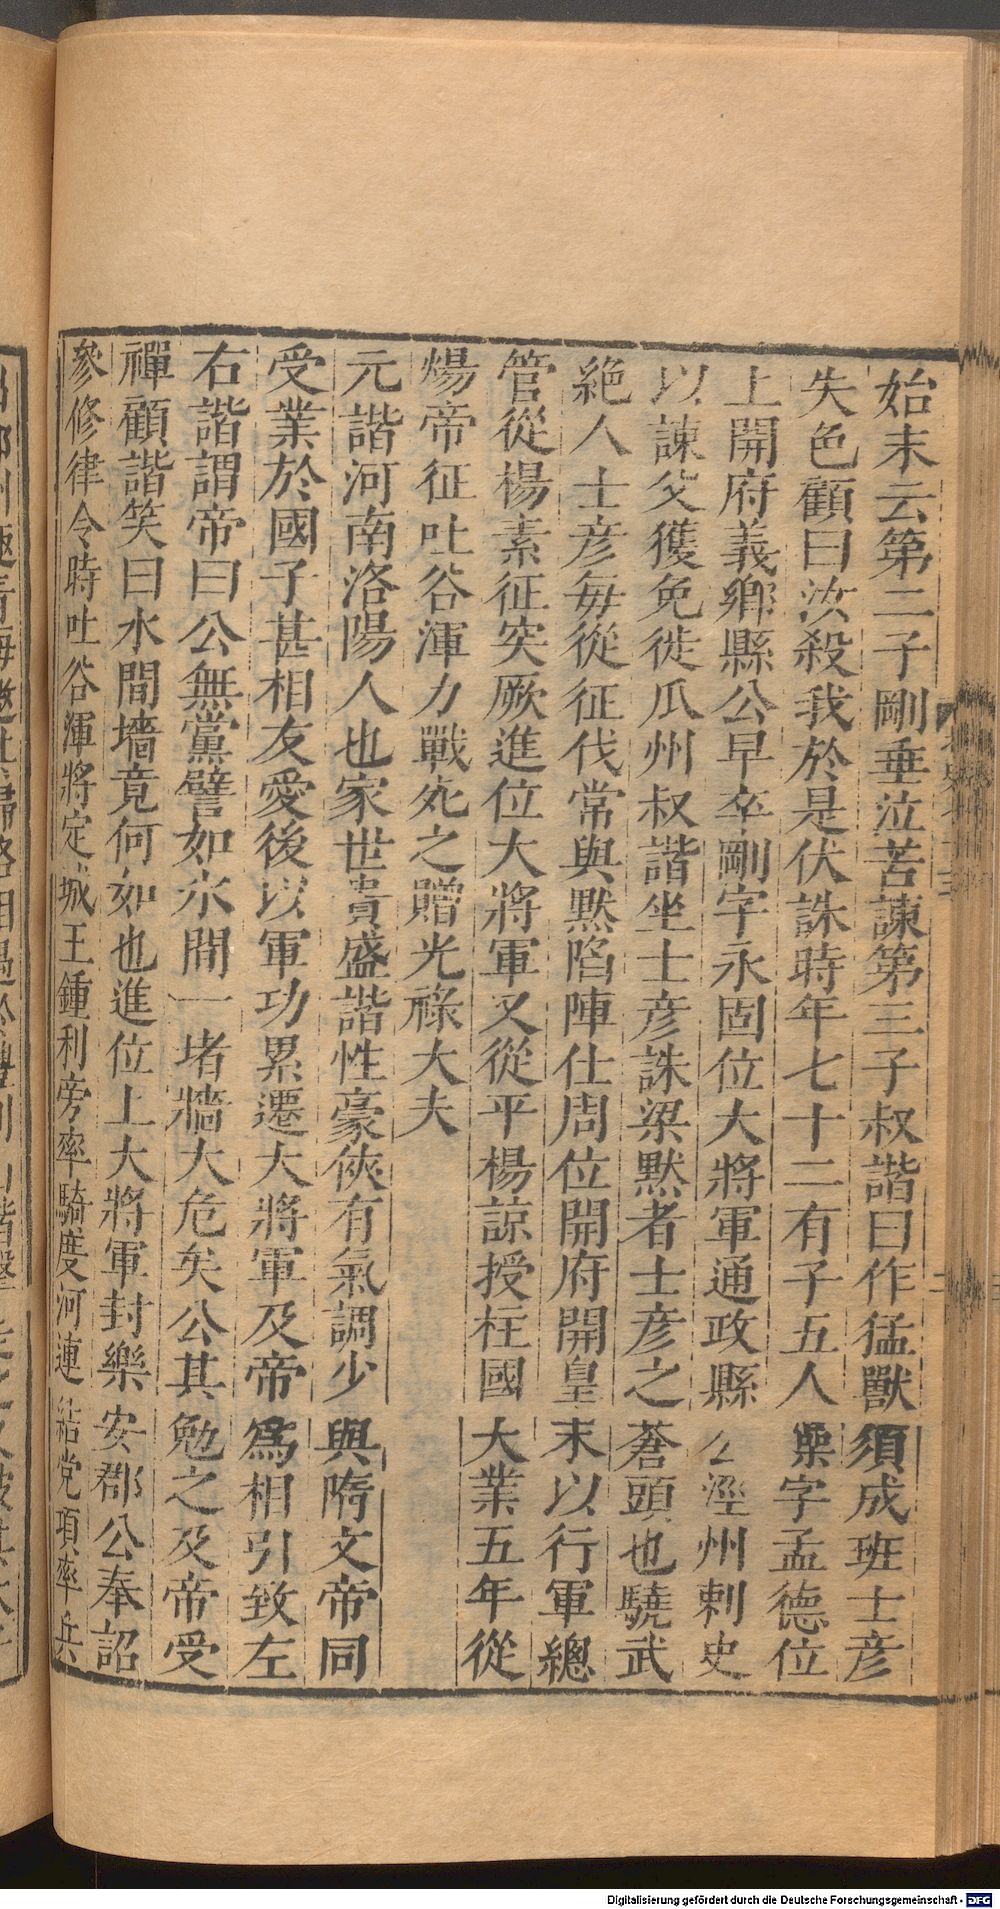 始末云第二子剛垂泣苦諫第三子叔諧曰作猛獸須成班士彦
失色顧曰汝殺我於是伏誅時年七十二有子五人操字孟德位
上開府義鄉縣公早卒剛字永固位大將軍通政縣公涇州刺史
以諫父獲免徙瓜州叔諧坐士彦誅梁默者士彦之蒼頭也驍武
絶人士彦毎從征伐常與默陷陣仕周位開府開皇末以行軍總
管從楊素征突厥進位大將軍又從平楊諒授柱國大業五年從
煬帝征吐谷渾力戰死之贈光祿大夫
元諧河南洛陽人也家世貴盛諧性豪俠有氣調少與隋文帝同
受業於國子甚相友愛後以軍功累遷大將軍及帝爲相引致左
右諧謂帝曰公無黨譬如水間一堵牆大危矣公其勉之及帝受
禪顧諧笑曰水間墻竟何如也進位上大將軍封樂安郡公奉詔
參修律令時吐谷渾將定城王鍾利旁率騎度河連結党項率兵
Digitalisierung gefördert durch die Deutsche Forschungsgemeinschaft - DFG